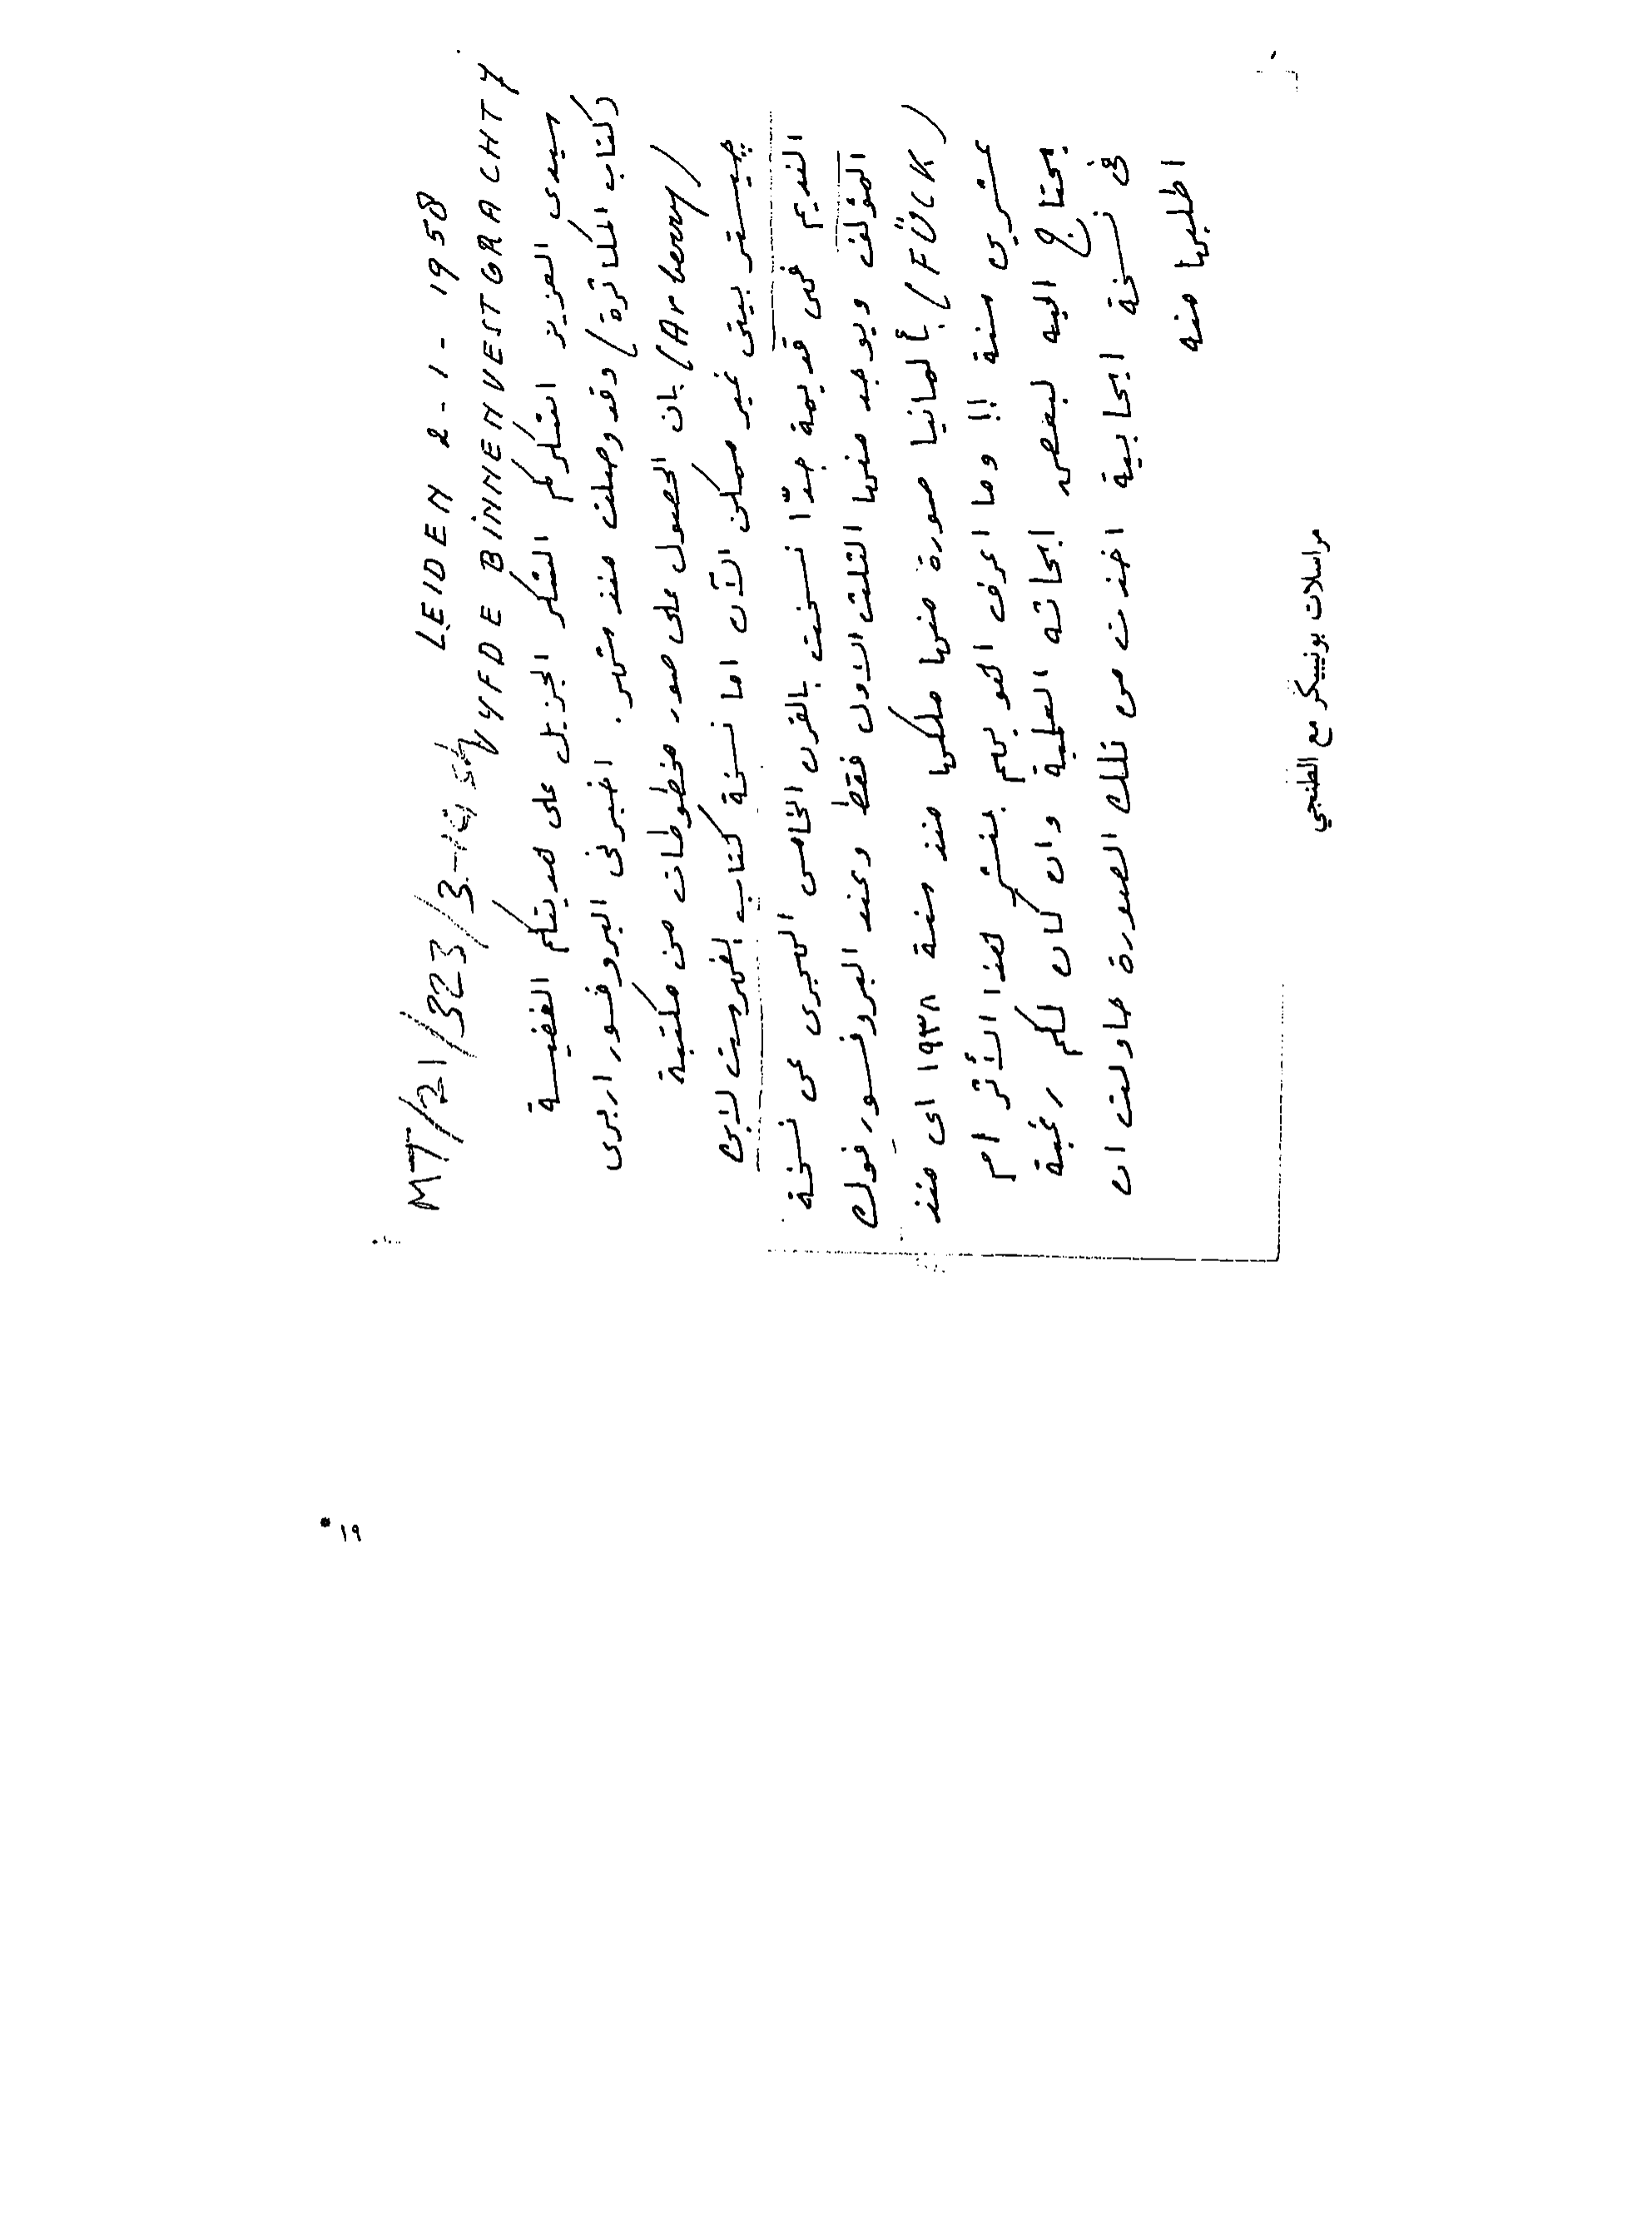 MT/21/323/3
LEIDEN 2-1-1958
VYFDE BINNENVESTGRACHT 7
سيدى العزيز اشكركم الشكر الجزيل على هديتكم النفيسة
(كتاب المكاثرة) وقد وصلت منذ شهر. اخبرنى البروفسور اربرى
(Arberry) بان الحصول على صور مخطوطات من مكتبة
چيستر بيتى غير ممكن الآن اما نسخة كتاب الفهرست لابن
النديم فهى قديمة جدّا نسخت بالقرن الخامس الهجرى عن نسخة
المؤلف ويوجد منها الثلث الاول فقط وعند البروفسور فوك
(FÜCK) بألمانيا صورة منها ملكها منذ سنة ١٩٣٨ اى منذ
عشرين سنة !! وما اعرف اهو يهتم بنشر هذا الأثر ام
يحتاج اليه لبعض ابحاثه العلمية وان كان لكم رغبة
فى نسخة ايجابية اخذت من تلك الصورة حاولت ان
اطلبها منه
مراسلات يونيبكر مع الطنجي
١٩